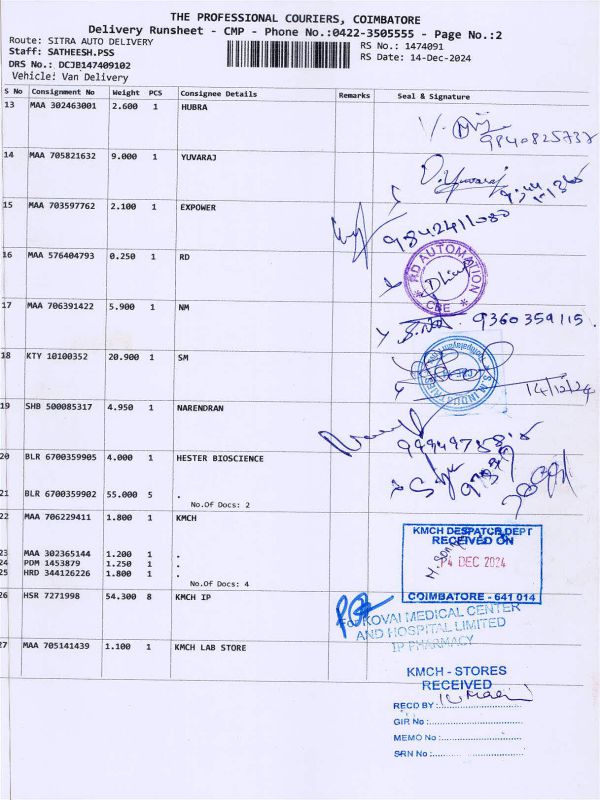 THE PROFESSIONAL COURIERS, COIMBATORE
Delivery Runsheet - CMP - Phone No.:0422-3505555 - Page No.:2
Route: SITRA AUTO DELIVERY
Staff: SATHEESH.PSS
DRS No.: DCJB147409102
Vehicle: Van Delivery
RS No.: 1474091
RS Date: 14-Dec-2024
S No Consignment No Weight PCS Consignee Details Remarks Seal & Signature
13 MAA 302463001 2.600 1 HUBRA
9840825737
14 MAA 705821632 9.000 1 YUVARAJ
D.Yuvaraj
15 MAA 703597762 2.100 1 EXPOWER
9842411080
16 MAA 576404793 0.250 1 RD
RD AUTOMATION
CBE
17 MAA 706391422 5.900 1 NM
9360359115.
18 KTY 10100352 20.900 1 SM
14/12/24
19 SHB 500085317 4.950 1 NARENDRAN
20 BLR 6700359905 4.000 1 HESTER BIOSCIENCE
21 BLR 6700359902 55.000 5 .
No.Of Docs: 2
22 MAA 706229411 1.800 1 KMCH
23 MAA 302365144 1.200 1 .
24 PDM 1453879 1.250 1 .
25 HRD 344126226 1.800 1 .
No.Of Docs: 4
KMCH DESPATCH DEPT
RECEIVED ON
14 DEC 2024
COIMBATORE - 641 014
26 HSR 7271998 54.300 8 KMCH IP
For KOVAI MEDICAL CENTER
AND HOSPITAL LIMITED
IP PHARMACY
27 MAA 705141439 1.100 1 KMCH LAB STORE
KMCH - STORES
RECEIVED
RECD BY :
GIR No :
MEMO No :
SRN No :